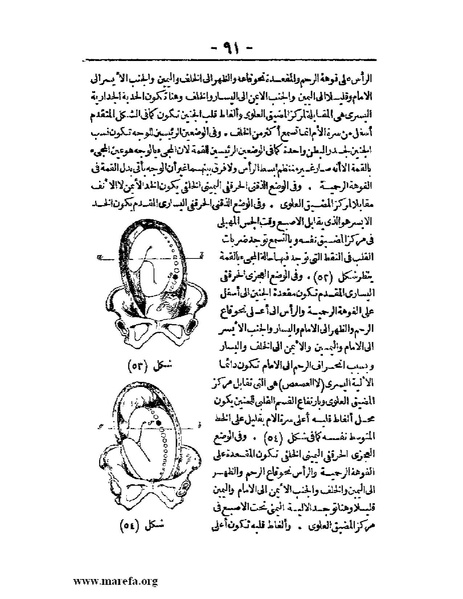 - ٩١ -
الرأس على فوهة الرحم والمقعدة نحو قاعه والظهر الى الخلف واليمين والجنب الأيسر الى
الامام وقليلا الى اليمين والجنب الايمن الى اليسار والخلف وهنا تكون الحدبة الجدارية
اليسرى هى المقابلة لمركز المضيق العلوى وألغاط قلب الجنين تكون كما فى الشكل المتقدم
أسفل من سرة الأم انما تسمع أكثر من الخلف . وفى الوضعين الرئيسين للوجه تكون نسب
الجنين لجدر البطن واحدة كما فى الوضعين الرئيسين للقمة لان المجىء بالوجه هو عين المجىء
بالقمة الا أنه صار غير منتظم ببسط الرأس ولا فرق بينهما غير أن الوجه يأتى بدل القمة فى
الفوهة الرحمية . وفى الوضع الذقنى الحرقفى اليمينى الخلفى يكون الخد الأيمن لا الأنف
مقابلا لمركز المضيق العلوى . وفى الوضع الذقنى الحرقفى اليسارى المقدم يكون الخد
الايسر هو الذى يقابل الاصبع وقت الجس المهبلى
فى مركز المضيق نفسه وبالتسمع توجد ضربات
القلب فى النقط التى توجد فيها حالة المجىء بالقمة
ينظر شكل (٥٢) . وفى الوضع العجزى الحرقفى
اليسارى المقدم تكون مقعدة الجنين الى أسفل
على الفوهة الرحمية والرأس الى أعلى نحو قاع
الرحم والظهر الى الامام واليسار والجنب الأيسر
الى الامام واليمين والأيمن الى الخلف واليسار
وبسبب انحراف الرحم الى الامام تكون دائما
الألية اليسرى (لا العصعص) هى التى تقابل مركز
المضيق العلوى وبارتفاع القسم القلبى للجنين يكون
محل ألغاط قلبه أعلى سرة الام بقليل على الخط
المتوسط نفسه كما فى شكل (٥٤) . وفى الوضع
العجزى الحرقفى اليمينى الخلفى تكون المقعدة على
الفوهة الرحمية والرأس نحو قاع الرحم والظهر
الى اليمين والخلف والجنب الأيمن الى الامام واليمين
قليلا وهنا توجد الالية اليمنى تحت الاصبع فى
مركز المضيق العلوى . وألغاط قلبه تكون أعلى
شكل (٥٣)
شكل (٥٤)
www.marefa.org